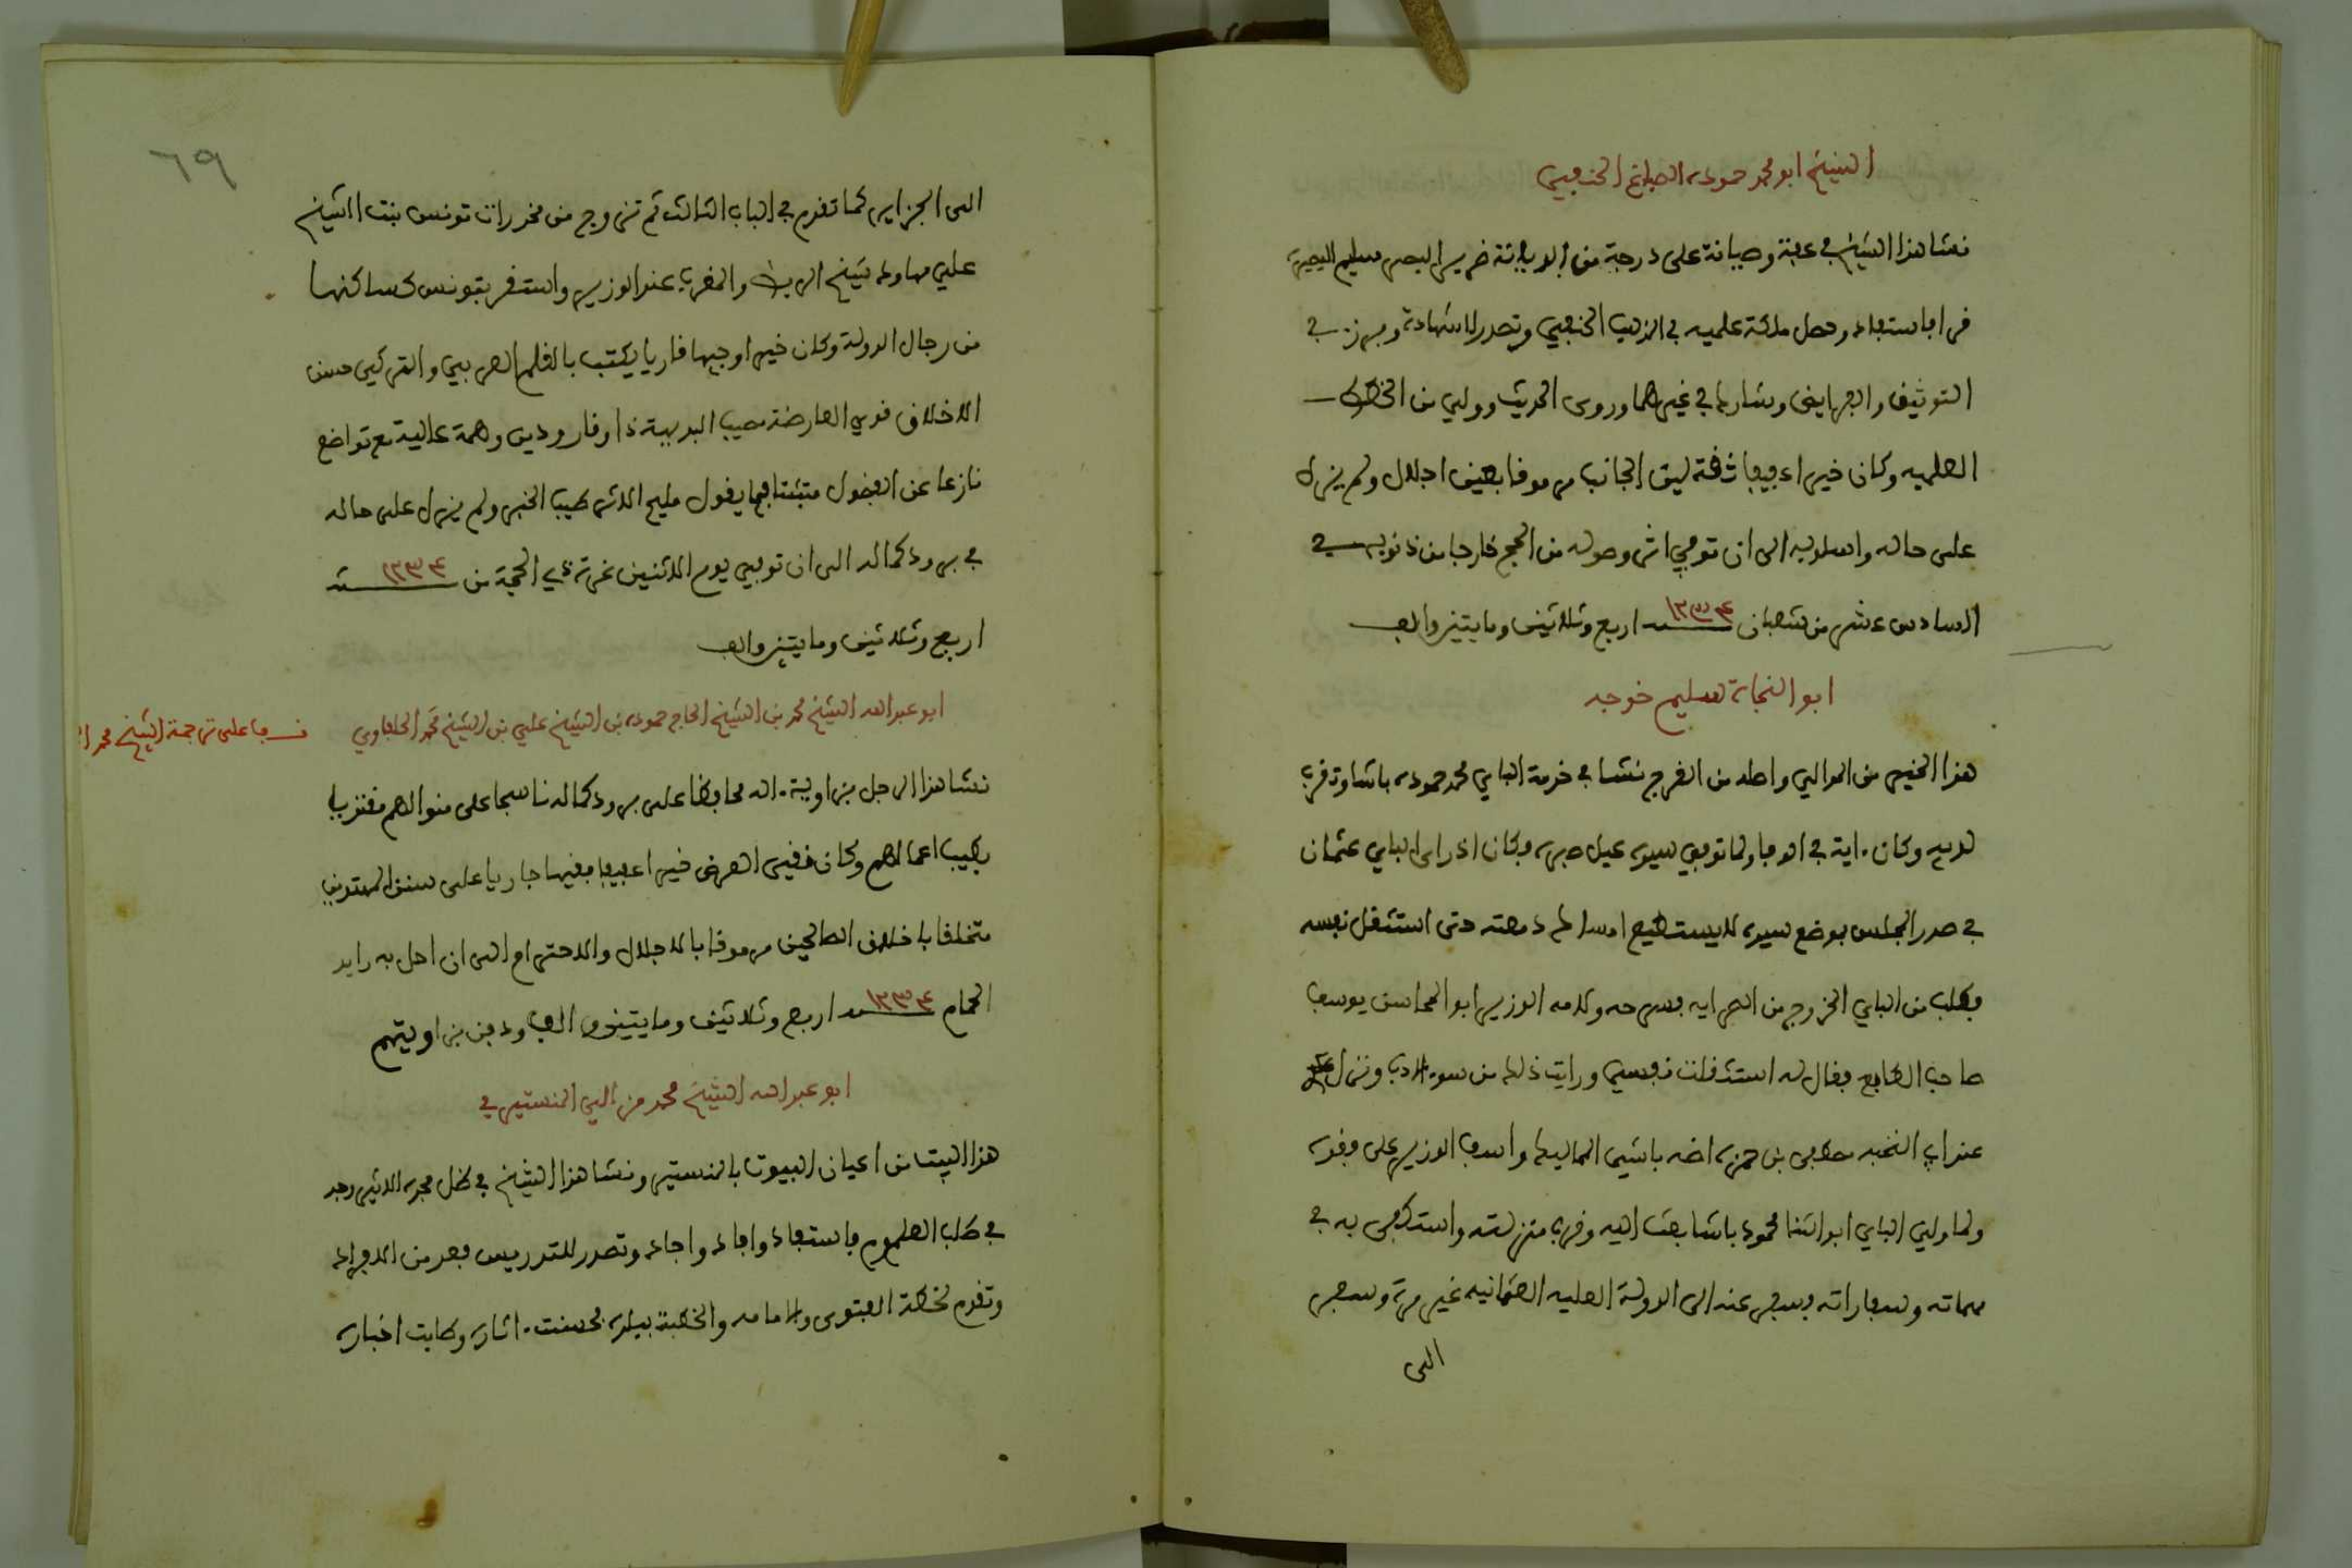 الشيخ ابو محمد حمودة الصباغ الحنفي
نشا هذا الشيخ في عفة وصيانة على درجة من الديانة ضرير البصر سليم البصيرة
قرا فاستفاد وحصل ملكة علميه في المذهب الحنفي وتصدر للشهادة وبرز في
التوثيق والفرايض وشارك في غيرهما وروى الحديث وولي من الخطط
العلميه وكان خيرا عفيفا ثقة لين الجانب مرموقا بعين اجلال ولم يزل
على حاله واسلوبه الى ان توفي اثر وصوله من الحج خارجا من ذنوبه في
السادس عشر من شعبان سنة ١٢٣٤ اربع وثلاثين ومايتين والف
ابو النجاة سليم خوجه
هذا الخير من الموالي واصله من الفرج نشا في خدمة الباي محمد حمودة باشا وتقرب
لديه وكان ءاية في الوفا ولما توفي سيده عيل صبره فكان اذا راى الباي عثمان
في صدر المجلس بموضع سيده لا يستطيع امساك دمعته حتى استثقل نفسه
فطلب من الباي الخروج من السرايه فسرحه ولامه الوزير ابو المحاسن يوسف
صاحب الطابع فقال له استثقلت نفسي ورايت ذلك من سوء الادب ونزل
عند ابي النخبه مصطفى بن حمزة اضه باشي المماليك واسف الوزير على فقده
ولما ولي الباي ابو الثنا محمود باشا بعث اليه وقرب منزلته واستكفى به في
مهماته وسفاراته وسفر عنه الى الدولة العليه العثمانيه غير مرة وسفر
الى
٦٩
الى الجزاير كما تقدم في الباب الثالث ثم تزوج من مخدرات تونس بنت الشيخ
علي مهاود شيخ الربط والمقرب عند الوزير واستقر بتونس كساكنها
من رجال الدولة وكان خيرا وجيها قاريا يكتب بالقلم العربي والتركي حسن
الاخلاق قوي العارضة مصيب البديهة ذا وقار ودين وهمة عالية مع تواضع
نازعا عن الفضول متثبتا فيما يقول مليح الاثر طيب الخبر ولم يزل على حاله
في برود كماله الى ان توفي يوم الاثنين غرة ذي الحجة من سنة ١٢٣٤
اربع وثلاثين ومايتين والف
ابو عبد الله الشيخ محمد بن الشيخ الحاج حمودة بن الشيخ علي بن الشيخ محمد الحلفاوي
قف على ترجمة الشيخ محمد
نشا هذا الرجل بزاوية ءاله محافظا على برود كماله ناسجا على منوالهم مقتديا
بطيب اعمالهم وكان نقي العرض خيرا عفيفا فقيها جاريا على سنن المهتدين
متخلقا باخلاق الصالحين مرموقا بالاجلال والاحترام الى ان احل به رايد
الحمام سنة ١٢٣٤ اربع وثلاثين ومايتين والف ودفن بزاويتهم
ابو عبد الله الشيخ محمد مزالي المنستيري
هذا البيت من اعيان البيوت بالمنستير ونشا هذا الشيخ في ظل مجده الاثير وجد
في طلب العلوم فاستفاد وافاد واجاد وتصدر للتدريس فعد من الافراد
وتقدم لخطة الفتوى والامامه والخطبة ببلده فحسنت ءاثاره وطابت اخباره